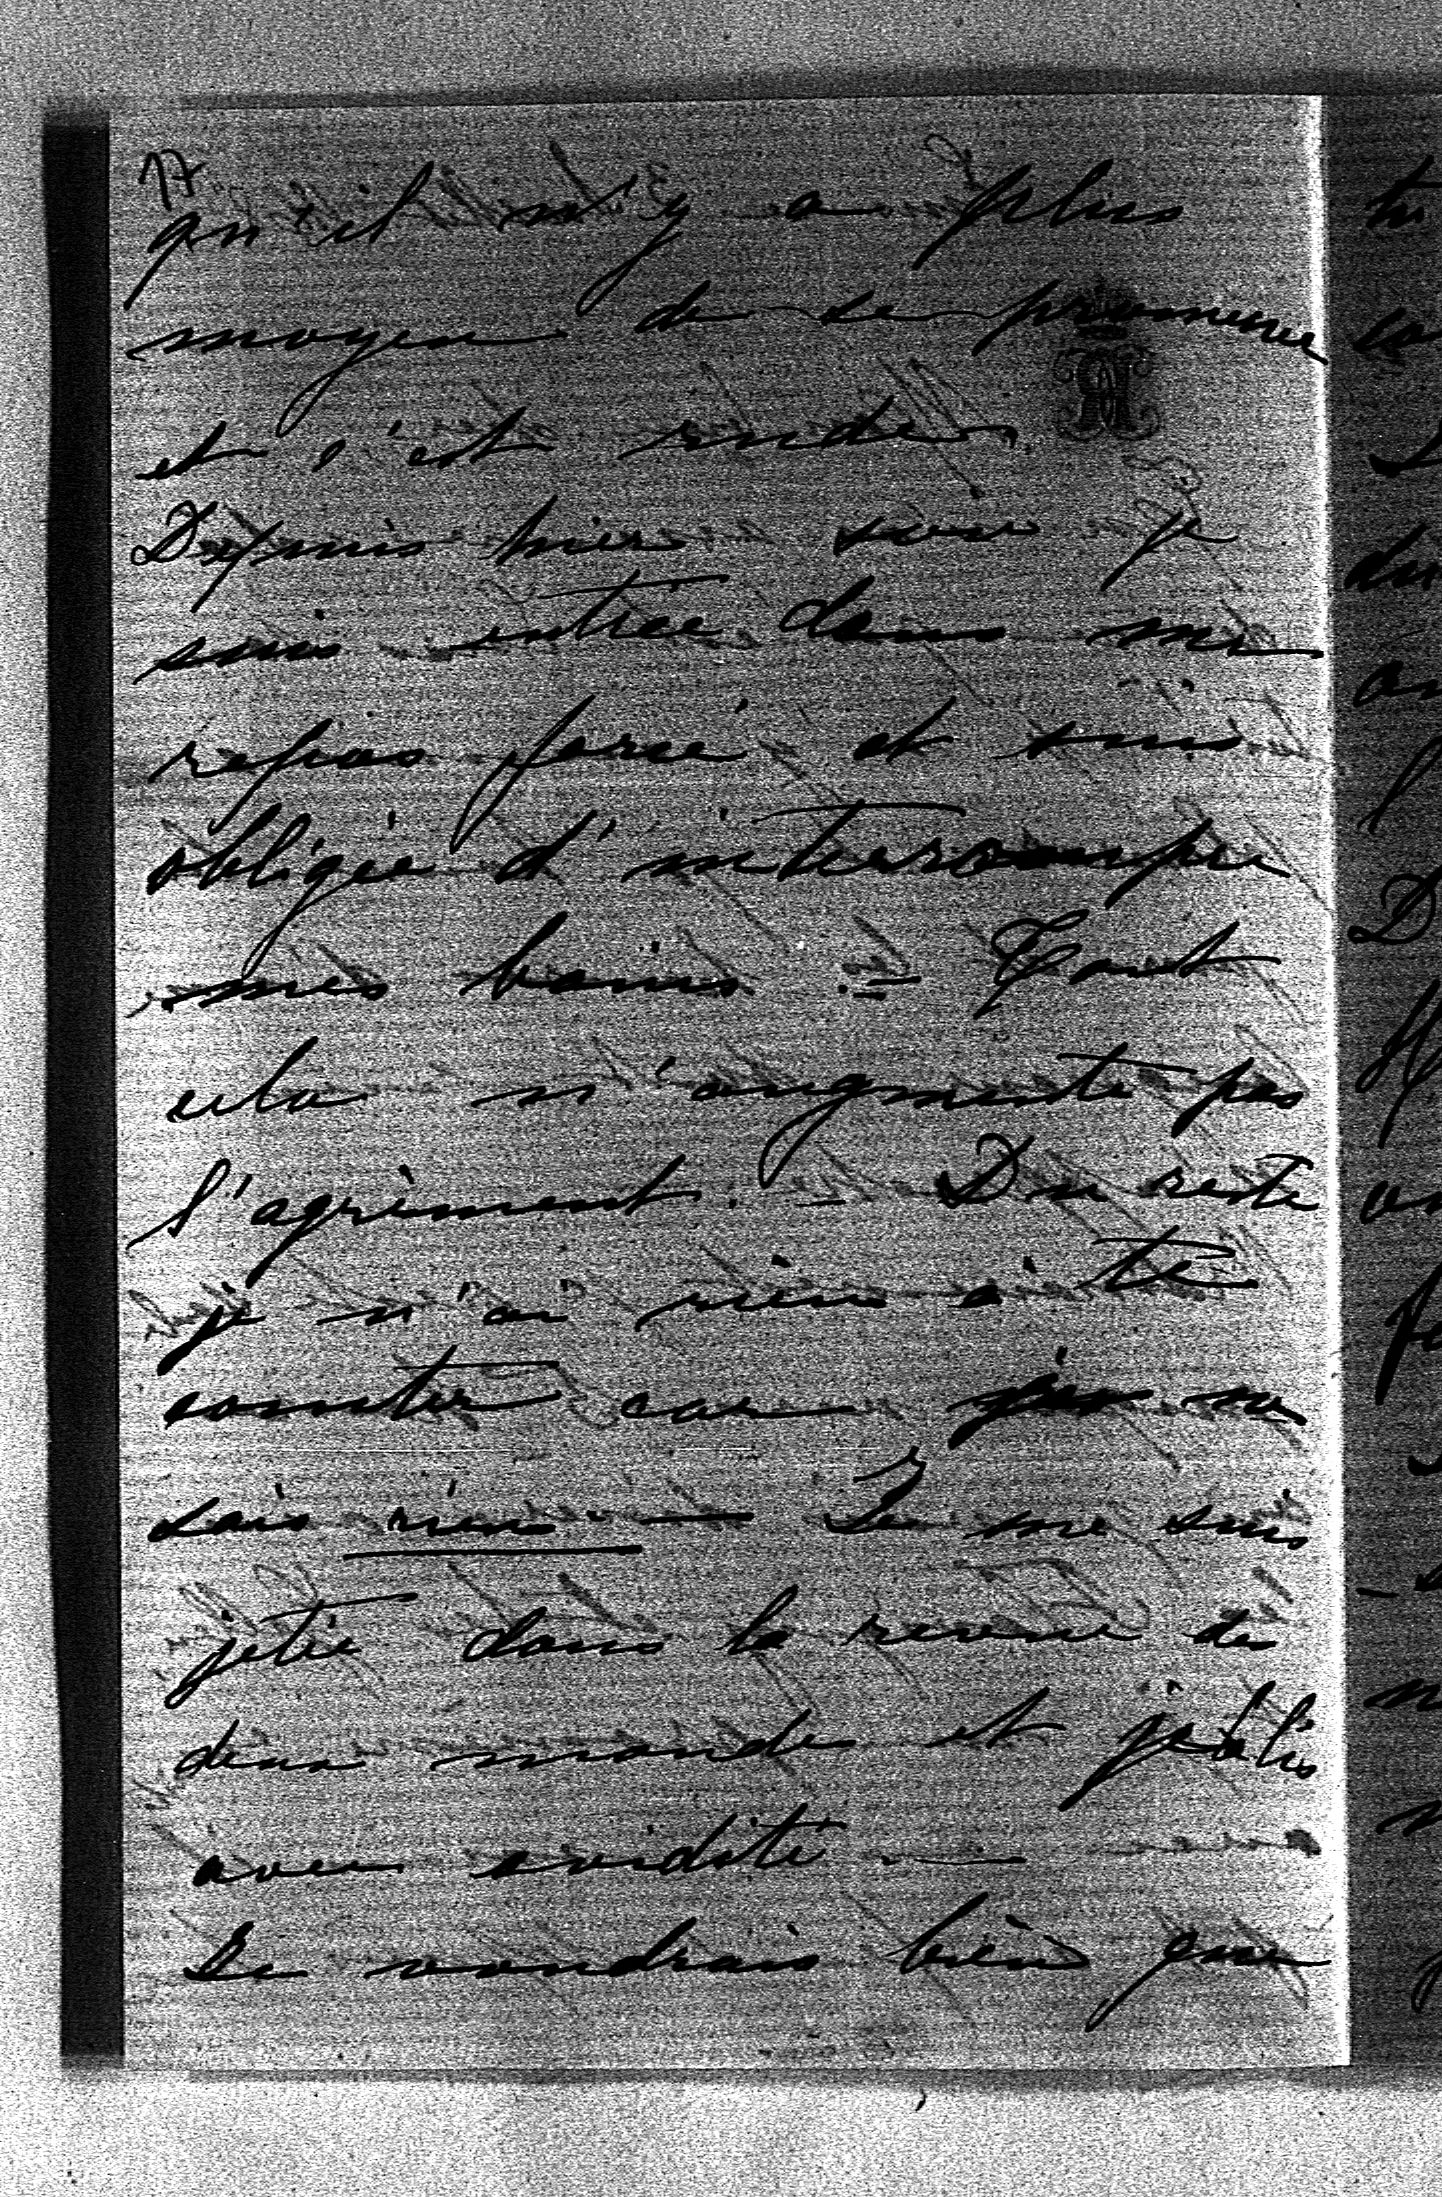 17
qu'il n'y a plus
moyen de se promener
et c'est rude.
Depuis hier soir je
suis entrée dans mon
repos forcé et suis
obligée d'interrompre
mes bains. = Tout
cela n'augmente pas
l'agrément. — Du reste
je n'ai rien à te
conter car je ne
sais rien. — Je me suis
jetée dans la revue des
deux mondes et je lis
avec avidité —
Je voudrais bien que